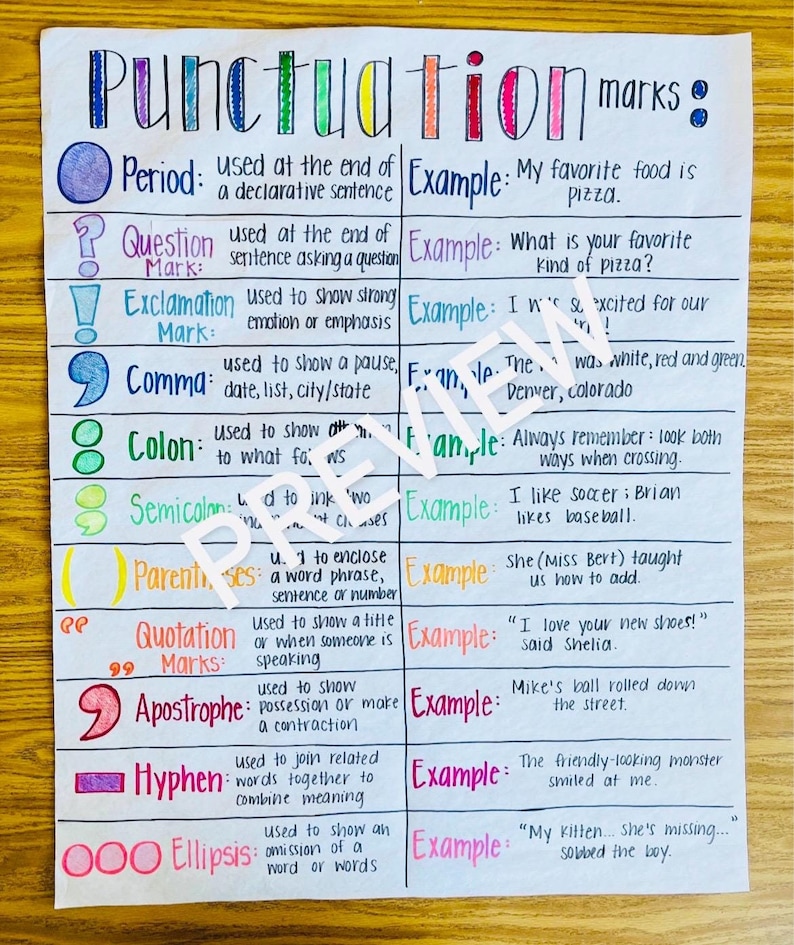 Punctuation marks:
Period: used at the end of
a declarative sentence
Example: My favorite food is
pizza.
Question
Mark:
used at the end of
sentence asking a question
Example: What is your favorite
kind of pizza?
Exclamation
Mark:
used to show strong
emotion or emphasis
Example: I was so excited for our
!
Comma: used to show a pause,
date, list, city/state
Example: The was white, red and green.
Denver, Colorado
Colon: used to show attention
to what follows
Example: Always remember: look both
ways when crossing.
Semicolon: used to link two
independent clauses
Example: I like soccer ; Brian
likes baseball.
( ) Parentheses: used to enclose
a word phrase,
sentence or number
Example: She (Miss Bert) taught
us how to add.
Quotation
Marks:
used to show a title
or when someone is
speaking
Example: "I love your new shoes!"
said Shelia.
Apostrophe: used to show
possession or make
a contraction
Example: Mike's ball rolled down
the street.
Hyphen: used to join related
words together to
combine meaning
Example: The friendly-looking monster
smiled at me.
Ellipsis: used to show an
omission of a
word or words
Example: "My kitten... she's missing..."
sobbed the boy.
PREVIEW